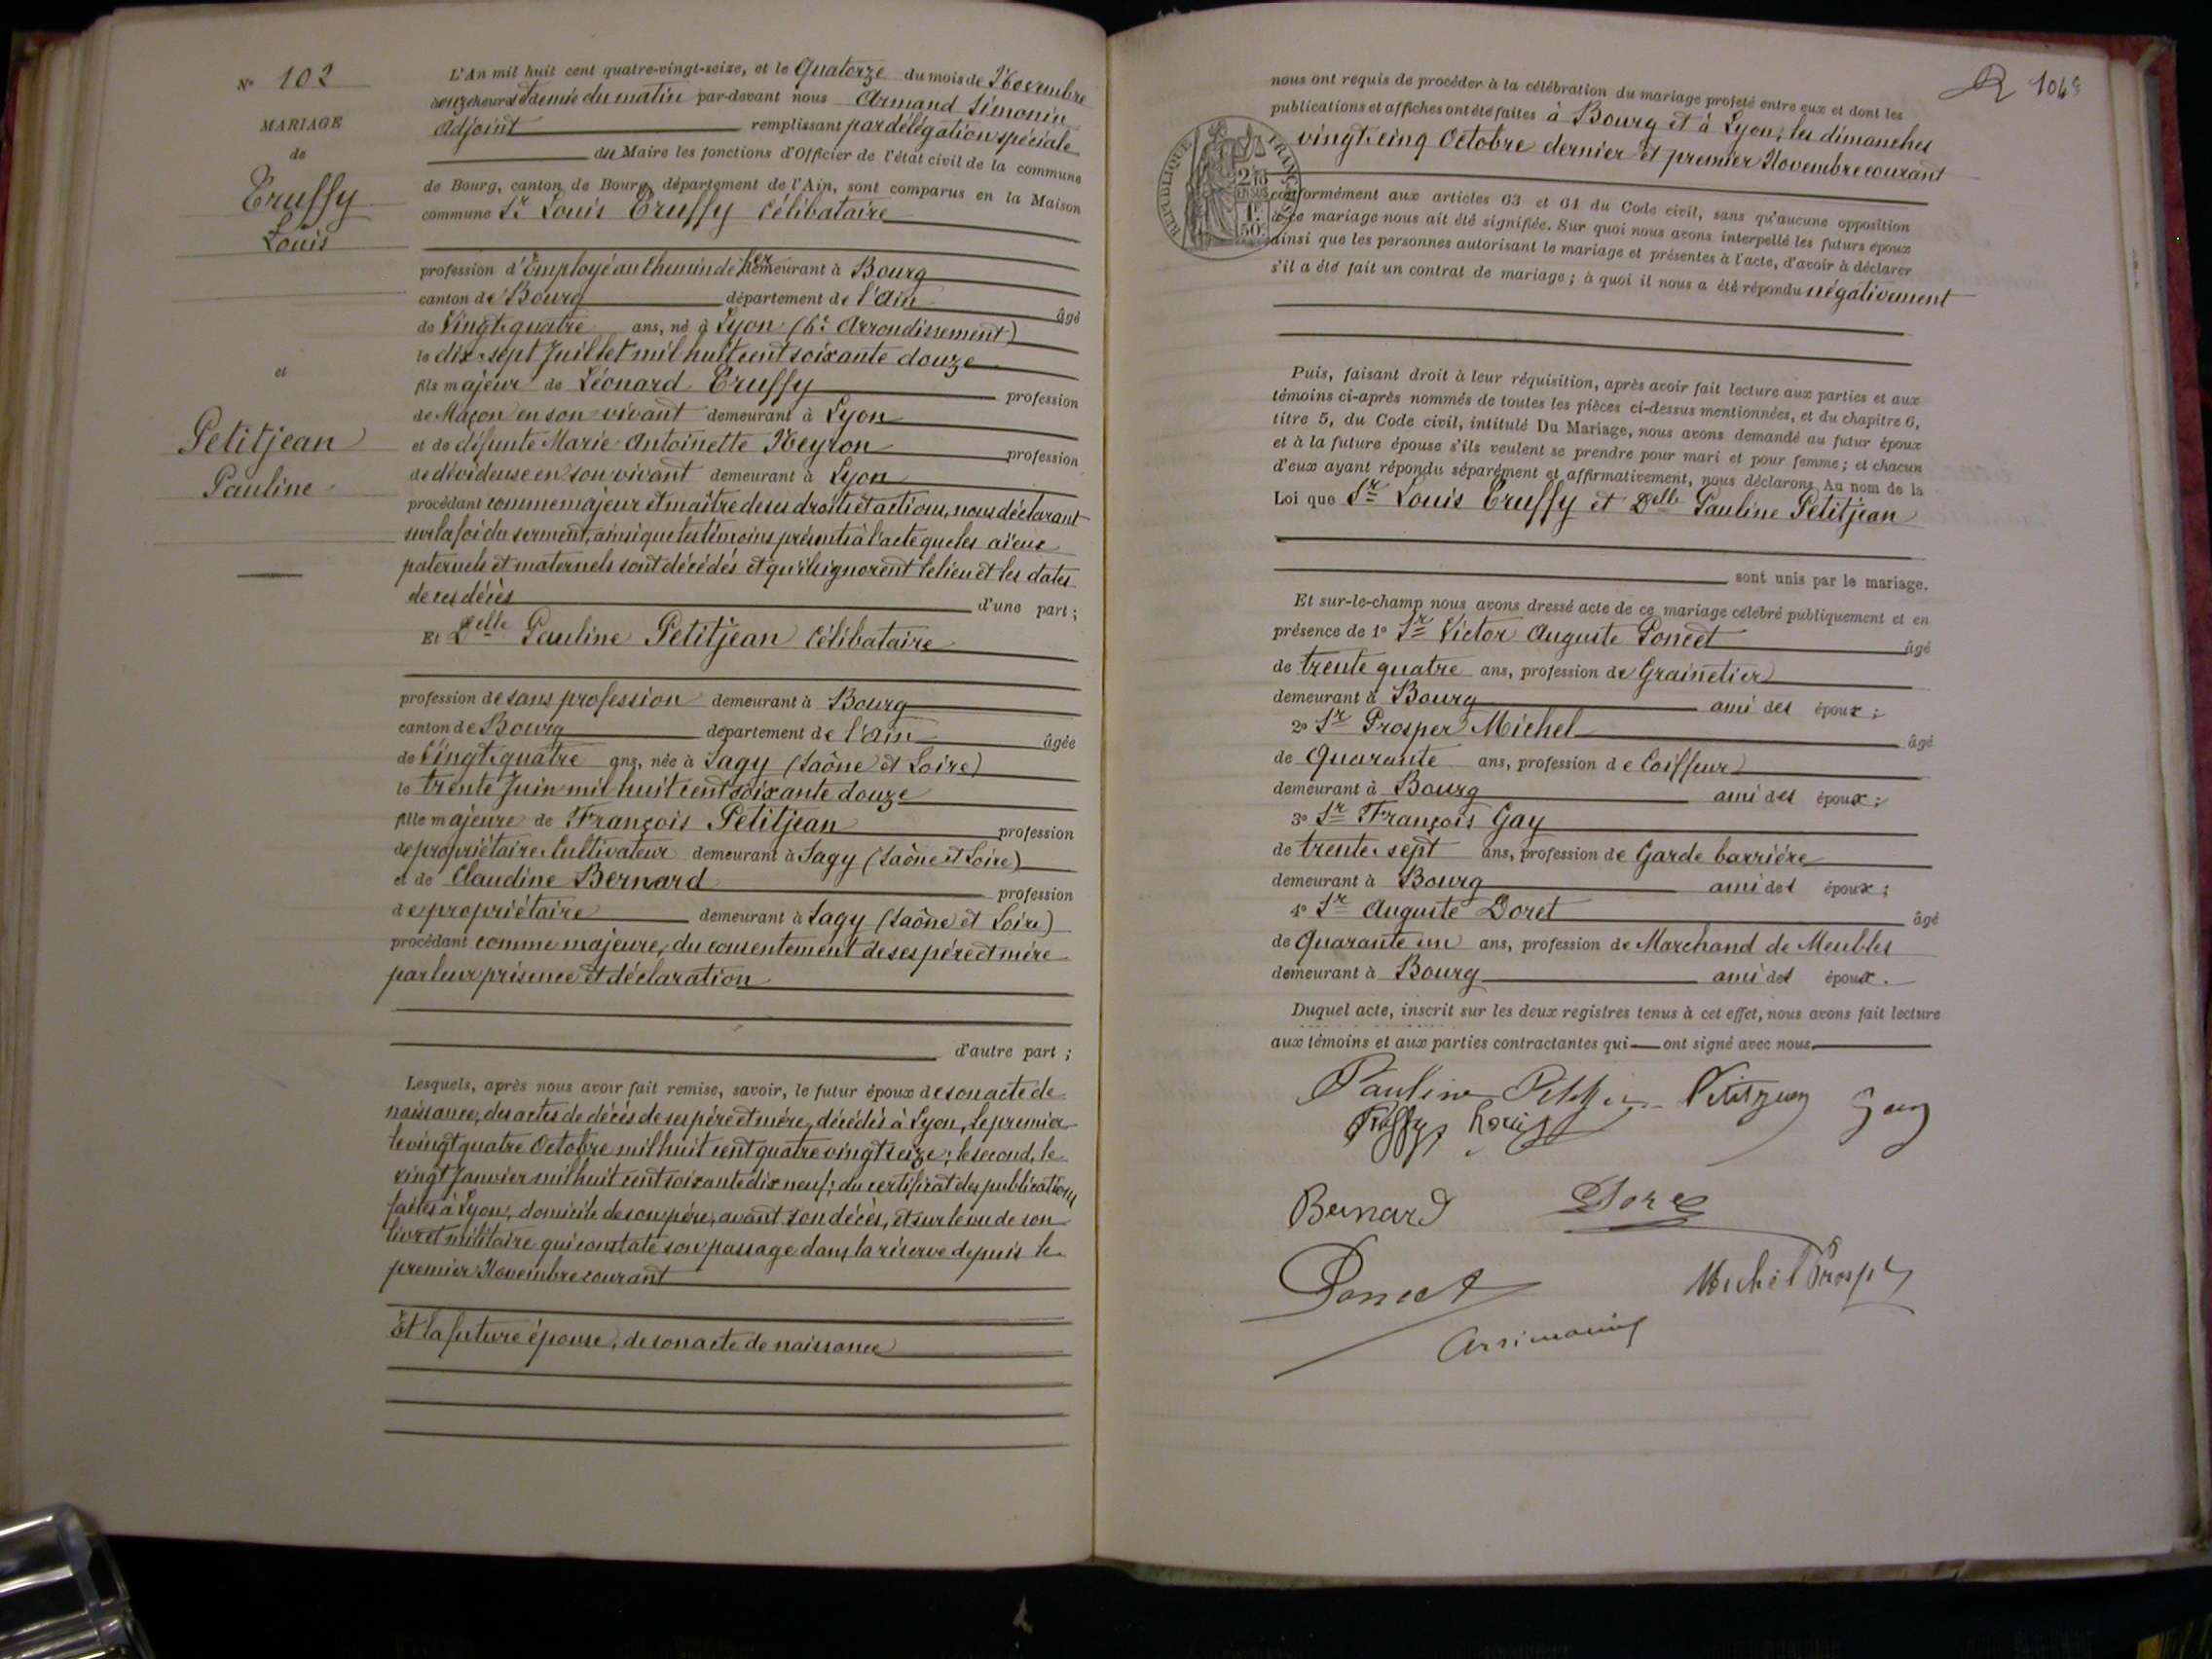 N° 102
MARIAGE
de
Truffy
Louis
et
Petitjean
Pauline
L'An mil huit cent quatre-vingt-seize, et le Quatorze du mois de Novembre
à onze heures et demie du matin par-devant nous Armand Simonin
Adjoint remplissant par délégation spéciale
du Maire les fonctions d'Officier de l'état civil de la commune
de Bourg, canton de Bourg, département de l'Ain, sont comparus en la Maison
commune Sr Louis Truffy Célibataire
profession d'Employé au Chemin de fer demeurant à Bourg
canton de Bourg département de l'Ain âgé
de Vingt-quatre ans, né à Lyon (6e Arrondissement)
le dix-sept Juillet mil huit cent soixante douze
fils majeur de Léonard Truffy profession
de Maçon en son vivant demeurant à Lyon
et de défunte Marie Antoinette Neyron profession
de dévideuse en son vivant demeurant à Lyon
procédant comme majeur et maître de ses droits et actions, nous déclarant
sur la foi du serment, ainsi que les témoins présents à l'acte que les aïeux
paternels et maternels sont décédés et qu'ils ignorent le lieu et les dates
de ces décès d'une part ;
Et Delle Pauline Petitjean Célibataire
profession de sans profession demeurant à Bourg
canton de Bourg département de l'Ain âgée
de Vingt-quatre ans, née à Sagy (Saône et Loire)
le trente Juin mil huit cent soixante douze
fille majeure de François Petitjean profession
de propriétaire Cultivateur demeurant à Sagy (Saône et Loire)
et de Claudine Bernard profession
de propriétaire demeurant à Sagy (Saône et Loire)
procédant comme majeure, du consentement de ses père et mère
par leur présence et déclaration
d'autre part ;
Lesquels, après nous avoir fait remise, savoir, le futur époux de son acte de
naissance, des actes de décès de ses père et mère, décédés à Lyon, le premier
le vingt quatre Octobre mil huit cent quatre vingt seize ; le second, le
vingt Janvier mil huit cent soixante dix neuf ; du certificat des publications
faites à Lyon, domicile de son père, avant son décès, et sur le vu de son
livret militaire qui constate son passage dans la réserve depuis le
premier Novembre courant
Et la future épouse, de son acte de naissance
104
nous ont requis de procéder à la célébration du mariage projeté entre eux et dont les
publications et affiches ont été faites à Bourg et à Lyon, les dimanches
vingt-cinq Octobre dernier et premier Novembre courant
RÉPUBLIQUE FRANÇAISE
conformément aux articles 63 et 64 du Code civil, sans qu'aucune opposition
à ce mariage nous ait été signifiée. Sur quoi nous avons interpellé les futurs époux
ainsi que les personnes autorisant le mariage et présentes à l'acte, d'avoir à déclarer
s'il a été fait un contrat de mariage ; à quoi il nous a été répondu négativement
Puis, faisant droit à leur réquisition, après avoir fait lecture aux parties et aux
témoins ci-après nommés de toutes les pièces ci-dessus mentionnées, et du chapitre 6,
titre 5, du Code civil, intitulé Du Mariage, nous avons demandé au futur époux
et à la future épouse s'ils veulent se prendre pour mari et pour femme ; et chacun
d'eux ayant répondu séparément et affirmativement, nous déclarons Au nom de la
Loi que Sr Louis Truffy et Delle Pauline Petitjean
sont unis par le mariage.
Et sur-le-champ nous avons dressé acte de ce mariage célébré publiquement et en
présence de 1° Sr Victor Auguste Poncet âgé
de trente quatre ans, profession de Grainetier
demeurant à Bourg ami des époux ;
2° Sr Prosper Michel âgé
de Quarante ans, profession de Coiffeur
demeurant à Bourg ami des époux ;
3° Sr François Gay
de trente-sept ans, profession de Garde barrière
demeurant à Bourg ami des époux ;
4° Sr Auguste Doret âgé
de Quarante un ans, profession de Marchand de Meubles
demeurant à Bourg ami des époux.
Duquel acte, inscrit sur les deux registres tenus à cet effet, nous avons fait lecture
aux témoins et aux parties contractantes qui ont signé avec nous
Pauline Petitjean Gay
Louis
Bernard Doret
Poncet Michel Prosper